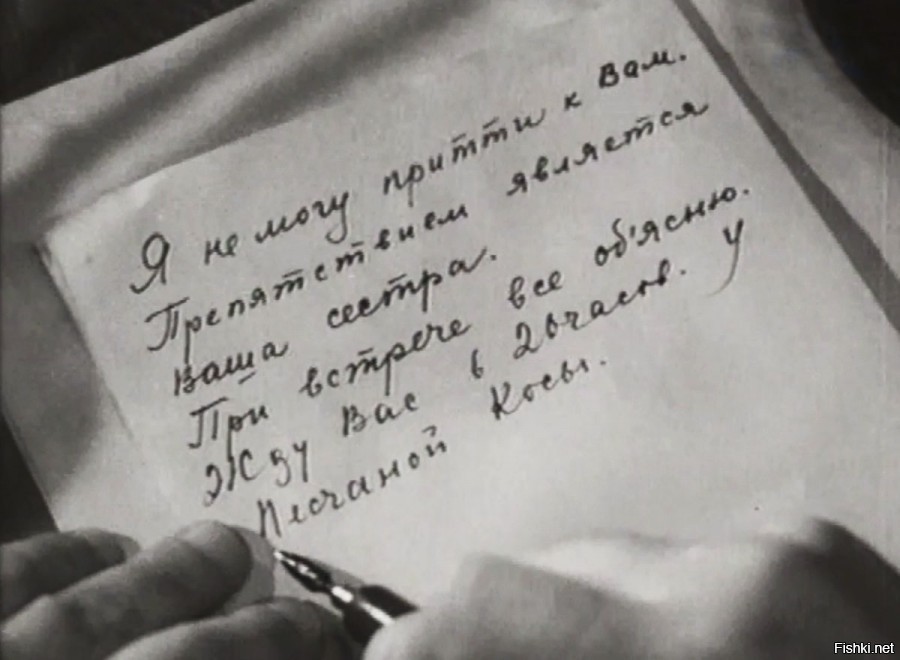 Я не могу притти к Вам.
Препятствием является
Ваша сестра.
При встрече все об'ясню.
Жду Вас в 20 часов. У
Песчаной Косы.
Fishki.net